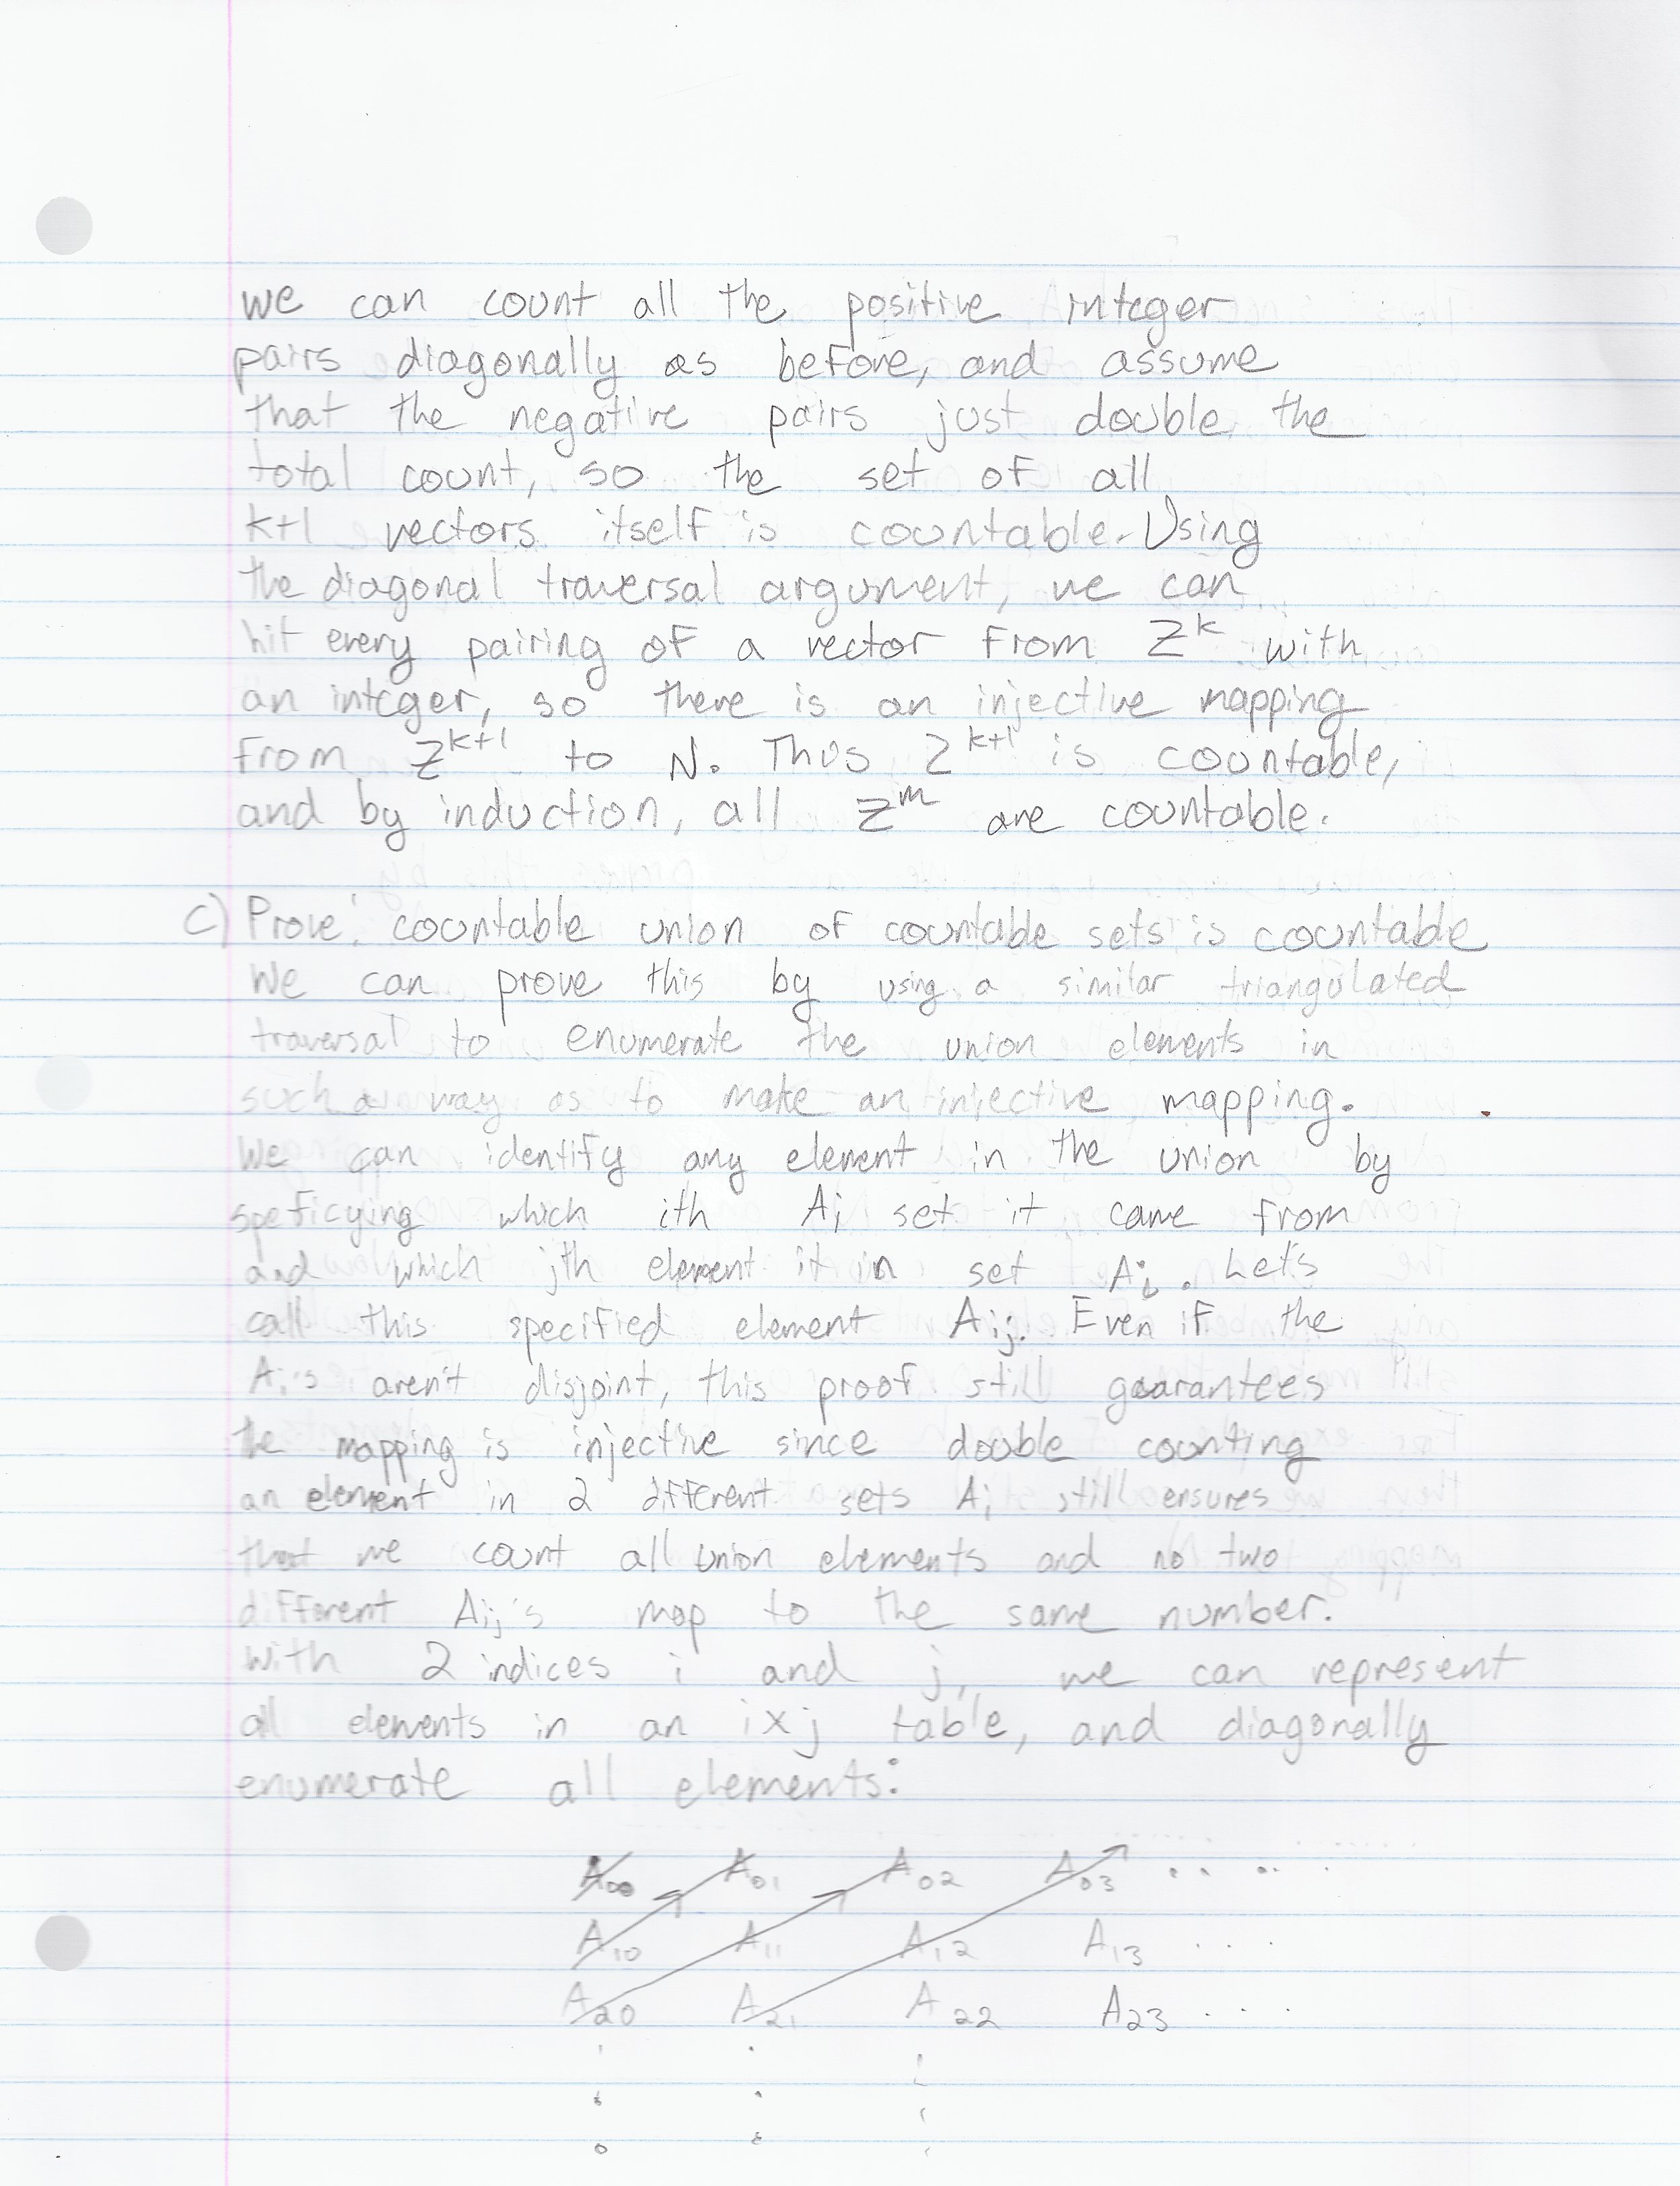 we can count all the positive integer
pairs diagonally as before, and assume
that the negative pairs just double the
total count, so the set of all
k+1 vectors itself is countable. Using
the diagonal traversal argument, we can
hit every pairing of a vector from Z^k with
an integer, so there is an injective mapping
from Z^k+1 to N. Thus Z^k+1 is countable,
and by induction, all Z^m are countable.
C) Prove: countable union of countable sets is countable
We can prove this by using a similar triangulated
traversal to enumerate the union elements in
such a way as to make an injective mapping.
We can identify any element in the union by
speficying which ith Ai set it came from
and which jth element it in set Ai. Let's
call this specified element Aij. Even if the
Ai's aren't disjoint, this proof still guarantees
the mapping is injective since double counting
an element in 2 different sets Ai still ensures
that we count all union elements and no two
different Aij's map to the same number.
With 2 indices i and j, we can represent
all elements in an ixj table, and diagonally
enumerate all elements:
A00 A01 A02 A03 ....
A10 A11 A12 A13 ...
A20 A21 A22 A23 ...